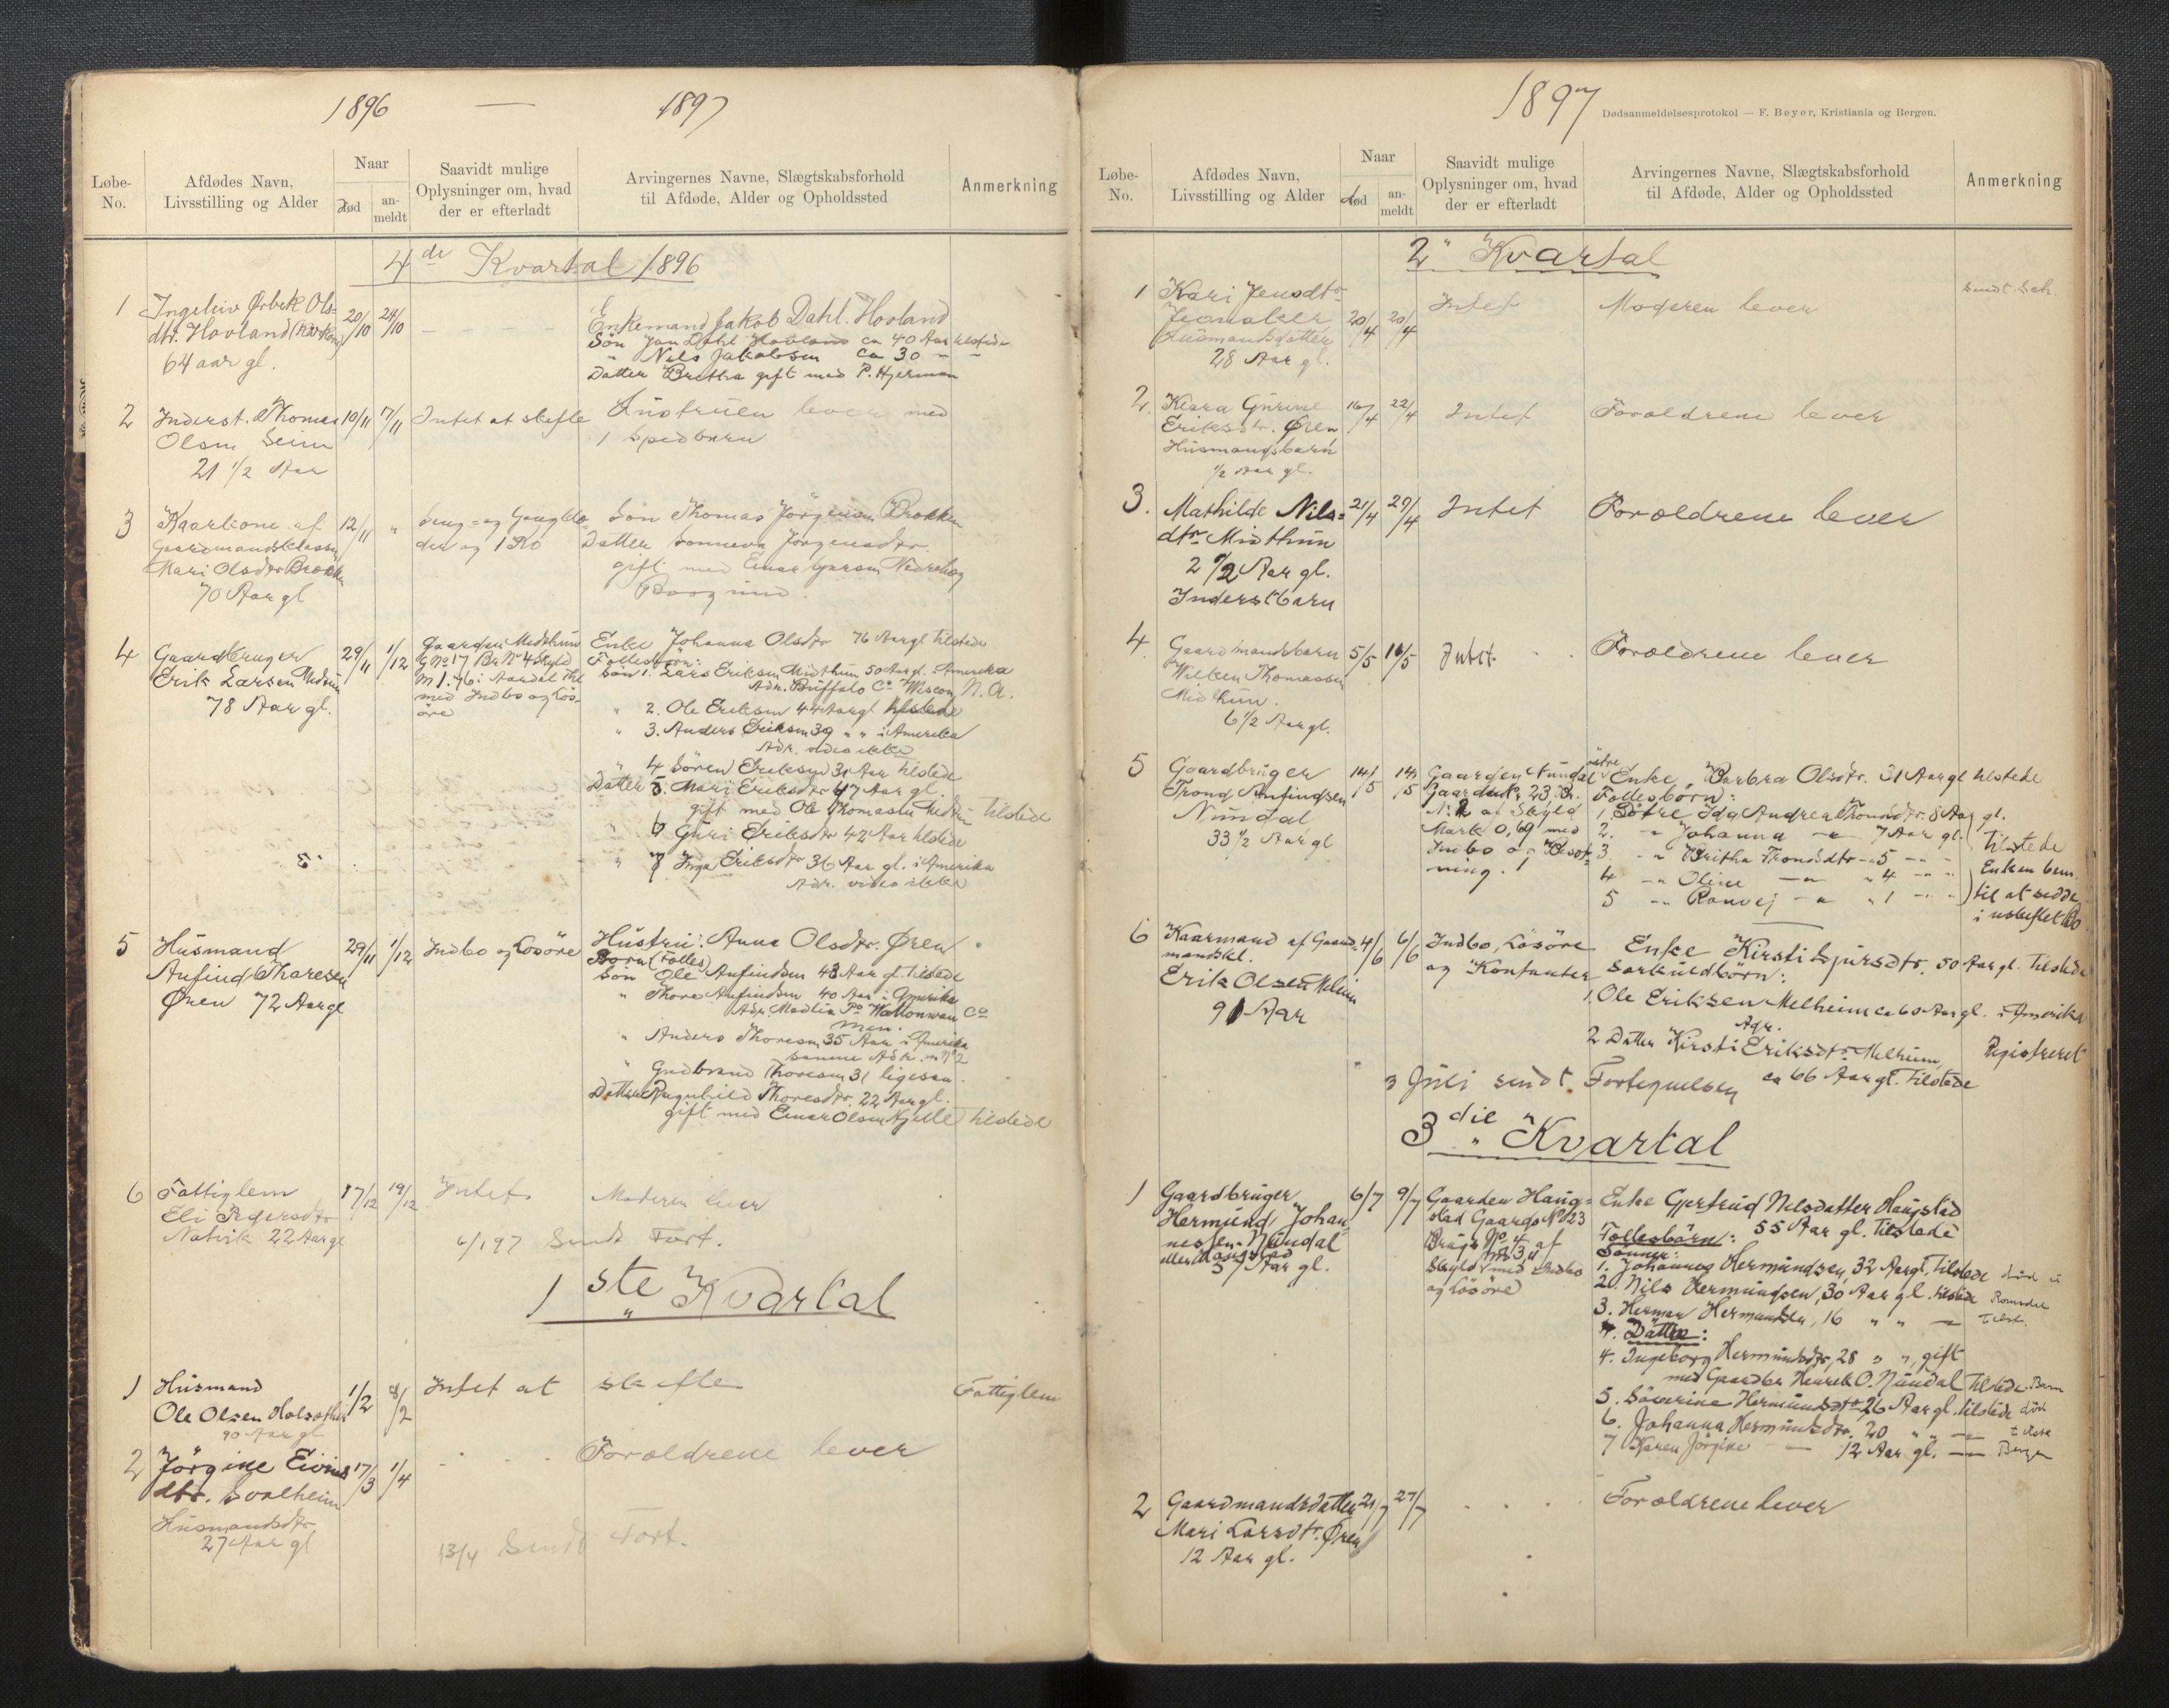 1896 — 1897
Løbe-No.
Afdødes Navn, Livsstilling og Alder
Naar
død
an-meldt
Saavidt mulige Oplysninger om, hvad der er efterladt
Arvingernes Navne, Slægtskabsforhold til Afdøde, Alder og Opholdssted
Anmerkning
4de Kvartal 1896
1 Ingeleiv Ørbek Ols=
dtr. Hovland
64 aar gl.
20/10 24/10
Enkemand Jakob Dahl. Hovland
Søn Jan Dahl Hovland ca 40 Aar tilstede
" Nils Jakobsen ca 30 " "
Datter Brettha gift med P. Hjerman
2 Inderst. Thomas
Olsen Seim
21 1/2 Aar
10/11 17/11
Intet at skefte
Hustruen lever med
1 Spedbarn
3 Kaarkone af
Gaardmandsklassen
Mari Olsdtr Brokken
70 Aar gl
12/11 "
Seng= og Gangklæ=
der og 1 Ko
Søn Thomas Jörgensen Brokken
Datter Sonneva Jörgensdtr.
gift med Einar
Borgund.
4 Gaardbruger
Erik Larsen Midtun
78 Aar gl.
29/11 1/12
Gaarden Midthun
G No 17 Br No 4 Skyld
M 1.46 i Aardal thl
med Indbo og Lös-
öre
Enke Johanna Olsdtr 76 Aargl tilstede
Fællesbørn:
Søn 1. Lars Eriksen Midthun 50 Aar gl. i Amerika
Adr. Buffalo Co Wiscon. N. A.
" 2. Ole Eriksen 44 Aar gl tilstede
" 3. Anders Eriksen 39 " " i Amerika
Adr. vides ikke
" 4 Sören Eriksen 31 Aar tilstede
Datter 5. Mari Eriksdtr 47 Aar gl.
gift med Ole Thomassen Midtun tilstede
" 6 Guri Eriksdtr 42 Aar tilstede
" 7 Inga Eriksdtr 36 Aar gl. i Amerika
Adr. vides ikke
5 Husmand
Anfind Thoresen
Øren 72 Aar gl
29/11 1/12
Indbo og Lösöre
Hustru: Anna Olsdtr. Øren
Börn (Fælles)
Søn Ole Anfindsen 43 Aar gl. tilstede
" Thore Anfindsen 40 Aar i Amerika
Adr Madlia Po Wattonwan Co
Min.
" Anders Thoresen 35 Aar i Amerika
samme Adr. m No 2
" Gudbrand Thoresen 31 ligesaa.
Datter Ragnhild Thoresdtr. 22 Aar gl.
gift med Einar Olsen Hjelle tilstede
6 Fattiglem
Eli Pedersdtr
Natvik 22 Aar gl
17/12 19/12
Intet.
Moderen lever
6/1 97 Sendt Fort.
1ste Kvartal
1 Husmand
Ole Olsen Holsæther
90 Aar gl
1/2 8/2
Intet at skefte
Fattiglem
2 Jörgine Eivinds
dtr. Svalheim
Husmandsdtr
27 Aar gl
17/3 1/4
Forældrene lever
13/4 Sendt Fort.
1897
Dødsanmeldelsesprotokol — F. Beyer, Kristiania og Bergen.
Løbe-No.
Afdødes Navn, Livsstilling og Alder
Naar
død
an-meldt
Saavidt mulige Oplysninger om, hvad der er efterladt
Arvingernes Navne, Slægtskabsforhold til Afdøde, Alder og Opholdssted
Anmerkning
2" Kvartal
1 Kari Jensdtr
Husmandsdatter
28 Aar gl.
20/4 20/4
Intet
Moderen lever
2. Klara Gurine
Eriksdtr. Øren
Husmandsbarn
1/2 Aar gl.
16/4 22/4
Intet
Forældrene lever
3. Mathilde Nils=
dtr Midthun
2 1/2 Aar gl.
Inderstbarn
21/4 29/4
Intet
Forældrene lever
4. Gaardmandsbarn
Willem Thomassen
Midthun.
6 1/2 Aar gl.
5/5 16/5
Intet.
Forældrene lever
5 Gaardbruger
Trond Anfindsen
Nundal
33 1/2 Aar gl
14/5 14/5
Gaarden Nundal östre
Gaards No 23 Br.
No 2 af Skyld
Mark 0,69 med
Indbo og Besæt-
ning.
Enke, Barbra Olsdtr. 31 Aar gl tilstede
Fællesbörn:
1 Döttre Ida Andrea Trondsdtr. 8 Aar gl.
2. " Johanna " 7 Aar gl.
3 " Britha Trondsdtr " 5 " "
4 " Oline " " 4 " "
5 " Ranvej " " 1 " "
tilstede
Enken bem.
til at sidde
i uskiftet Bo
6 Kaarmand af Gaard-
mandskl.
Erik Olsen Melheim
91 Aar
4/6 6/6
Indbo, Lösöre
og Kontanter
Enke Kirsti Sjursdtr. 50 Aar gl. tilstede
Særkuldbörn:
1. Ole Eriksen Melheim ca 60 Aar gl. i Amerika
Adr.
2 Datter Kirsti Eriksdtr Melheim,
ca 66 Aar gl. tilstede
Registreret
3 Juli sendt Fortegnelsen
3die Kvartal
1 Gaardbruger
Hermund Johan-
nessen Nundal
eller Haugstad
57 Aar gl.
6/7 9/7
Gaarden Haug=
stad Gaards No 23
Brugs No 4 af
Skyld med Indbo
og Lösöre
Enke Gjertrud Nilsdatter Haugstad
55 Aar gl. tilstede
Fællesbörn:
Sönner:
1. Johannes Hermundsen, 32 Aar gl. tilstede
2. Nils Hermundsen, 30 Aar gl. tilstede
3. Herman Hermundsen, 16 " " —
4. Döttre:
4. Ingeborg Hermundsdtr, 28 " ", gift
med Gaardbr Henrik O. Nundal tilstede
5. Söverine Hermundsdtr 26 Aar gl. tilstede död
6. Johanna Hermundsdtr. 20 " " —
7 Karen Jörgine — 12 Aar gl. — Bergen
2 Gaardmandsdatter
Mari Larsdtr. Øren
12 Aar gl.
21/7 27/7
Forældrene lever